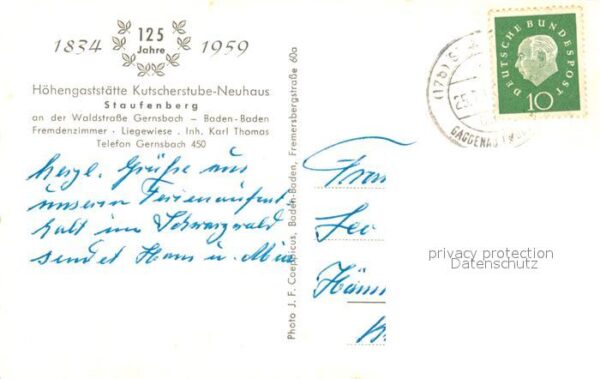 125
1834 Jahre 1959
Höhengaststätte Kutscherstube-Neuhaus
Staufenberg
an der Waldstraße Gernsbach – Baden-Baden
Fremdenzimmer · Liegewiese · Inh. Karl Thomas
Telefon Gernsbach 450
herzl. Grüße aus
unserem Ferienaufent
halt im Schwarzwald
sendet Hans u.
Photo J. F. Coeppicus, Baden-Baden, Fremersbergstraße 60a
Frau
Leo
privacy protection
Datenschutz
DEUTSCHE BUNDESPOST
10
(17b)
GAGGENAU